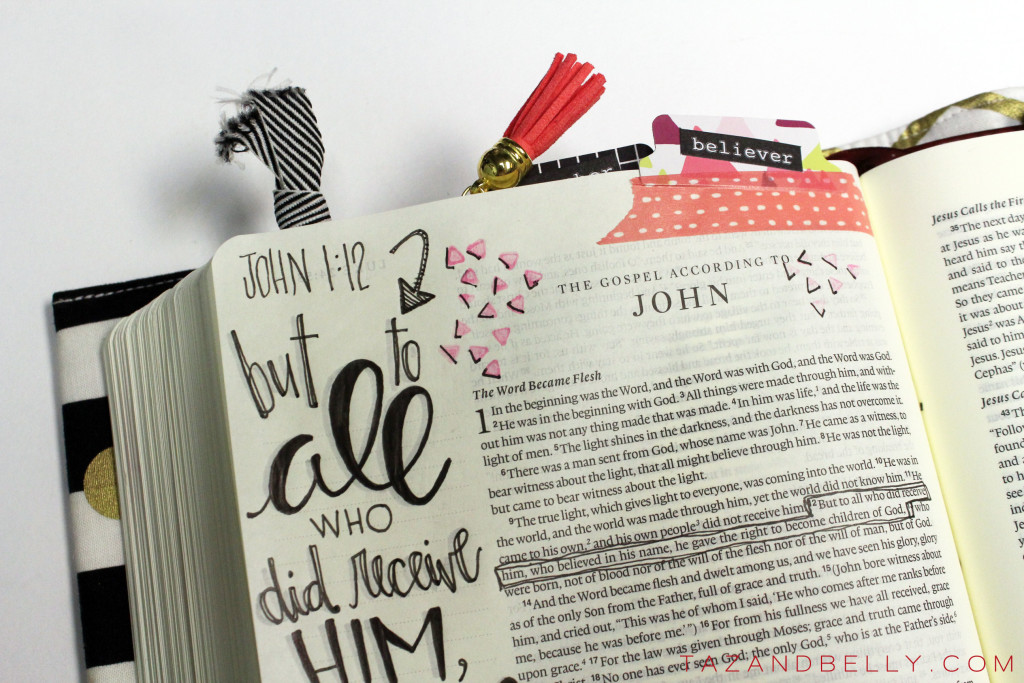 believer
JOHN 1:12
but to
all
WHO
did receive
HIM,
THE GOSPEL ACCORDING TO
JOHN
The Word Became Flesh
1 In the beginning was the Word, and the Word was with God, and the Word was God.
2 He was in the beginning with God. 3 All things were made through him, and with-
out him was not any thing made that was made. 4 In him was life,1 and the life was the
light of men. 5 The light shines in the darkness, and the darkness has not overcome it.
6 There was a man sent from God, whose name was John. 7 He came as a witness, to
bear witness about the light, that all might believe through him. 8 He was not the light,
but came to bear witness about the light.
9 The true light, which gives light to everyone, was coming into the world. 10 He was in
the world, and the world was made through him, yet the world did not know him. 11 He
came to his own,2 and his own people3 did not receive him. 12 But to all who did receive
him, who believed in his name, he gave the right to become children of God, 13 who
were born, not of blood nor of the will of the flesh nor of the will of man, but of God.
14 And the Word became flesh and dwelt among us, and we have seen his glory, glory
as of the only Son from the Father, full of grace and truth. 15 (John bore witness about
him, and cried out, “This was he of whom I said, ‘He who comes after me ranks before
me, because he was before me.’”) 16 For from his fullness we have all received, grace
upon grace.4 17 For the law was given through Moses; grace and truth came through
Christ. 18 No one has ever seen God; the only God,5 who is at the Father's side,6
Jesus Calls the Fir
35 The next day
at Jesus as he wa
heard him say th
and said to the
means Teacher
So they came
it was about
Jesus2 was A
said to him
Jesus. Jesu
Cephas” (
Jesus C
43 Th
“Follo
foun
and
to h
see
ind
Je
TAZANDBELLY.COM